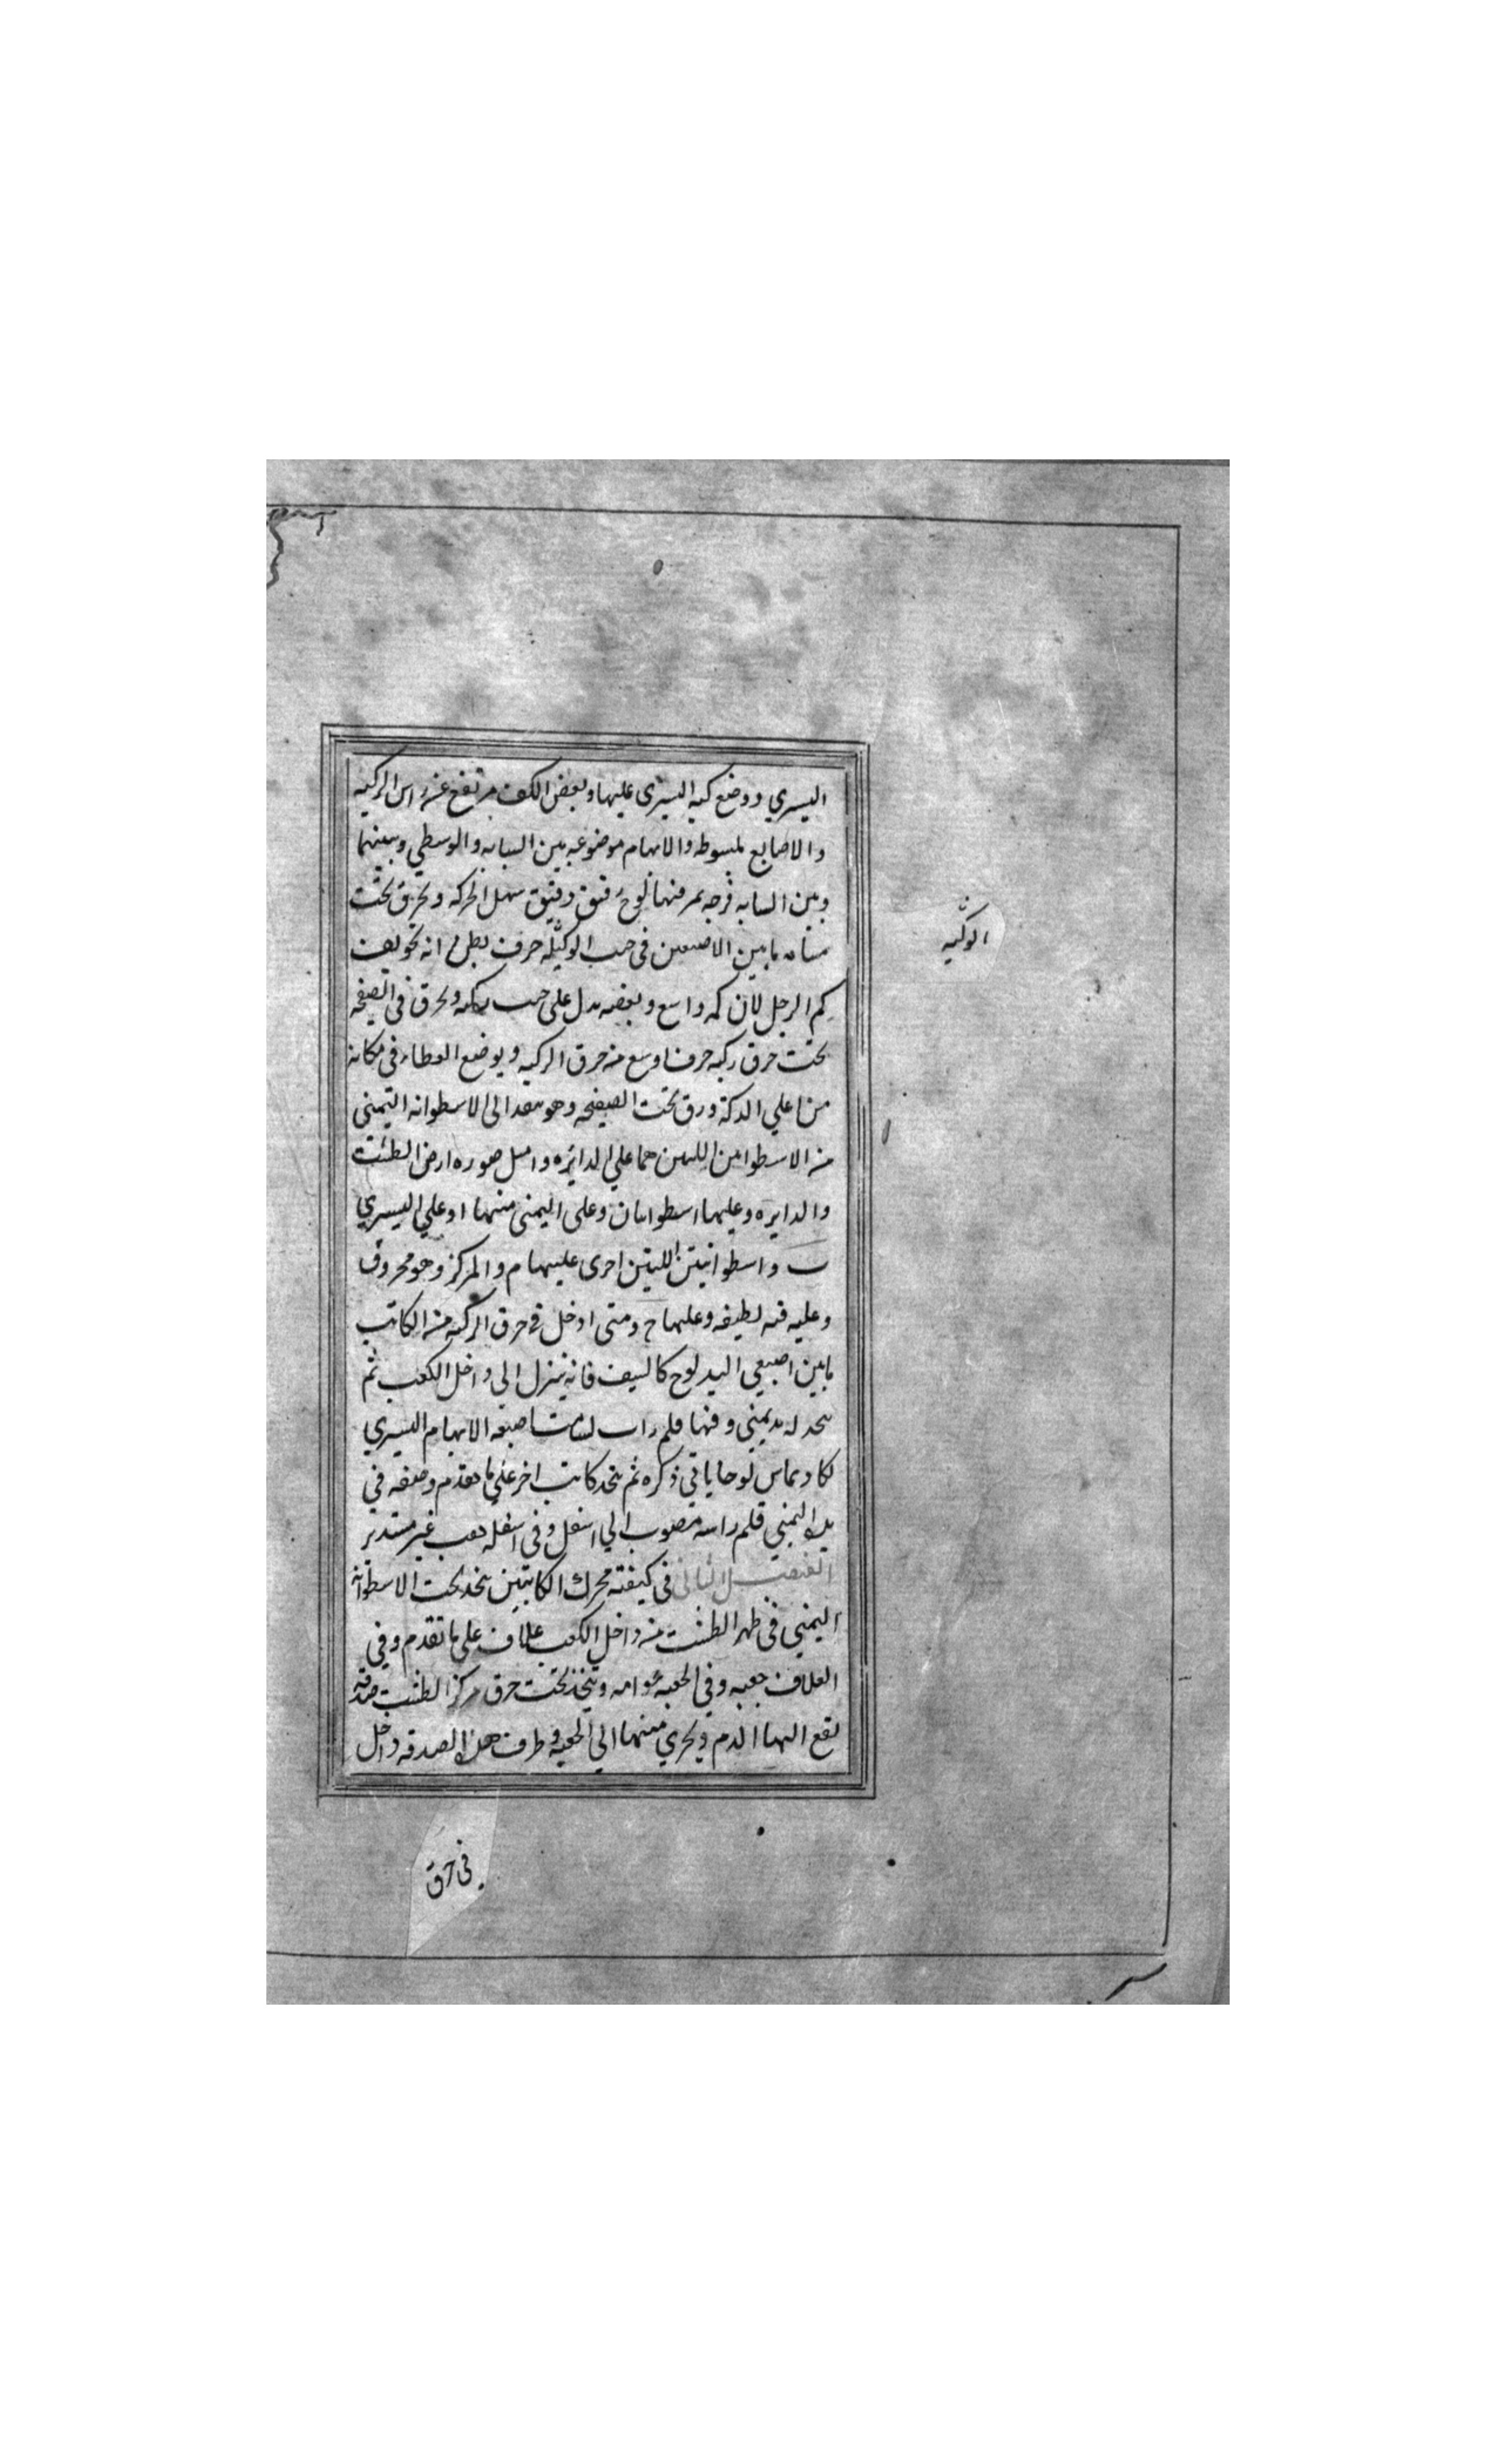 اليسري ووضع كفه اليسرى عليها وبعض الكف مرتفع عن راس الركبه
والاصابع مبسوطه والابهام موضوعه بين السبابه والوسطي وبينهما
وبين السبابه فرجه يمر فيها لوح دقيق سهل الحركه ويخرق تحت
ما بين الاصبعين في الركبه خرق يظن انه تجويف
كم الرجل لان كمه واسع وبعضه على ركبته ويخرق في الصفحه
تحت خرق ركبه خرقا اوسع من خرق الركبه ويوضع الغطاء في مكانه
من اعلي الدكة ورق تحت الصفحه وهو الى الاسطوانه اليمنى
من الاسطوانتين اللتين هما علي الدايره وامثل صوره ارض الطشت
والدايره وعليها اسطوانتان وعلى اليمنى منهما ا وعلي اليسري
ب واسطوانتين اللتين اخرى عليهما م والمركز وهو مخروق
وعليه قبه لطيفه وعليها ح ومتى ادخل في خرق الركبه من الكاتب
ما بين اصبعي اليد لوح كالسيف فانه ينزل الي داخل الكعب ثم
يتخذ له يد يمني وفيها قلم راسه لسامت اصبعه الابهام اليسري
لكا ويماس لوحا ياتي ذكره ثم يتخذ كاتب اخر علي ما تقدم وصفه في
يده اليمني قلم راسه مصوب الي اسفل وفي اسفله ثقب غير مستدير
الفصل الثاني في كيفية محرك الكاتبين يتخذ تحت الاسطوانه
اليمني في ظهر الطشت من داخل الكعب غلاف على ما تقدم وفي
الغلاف جعبه وفي الجعبه عوامه ويتخذ تحت خرق مركز الطشت صدفه
يقع اليها الدم ويجري منها الي الجعبه وطرف هذه الصدفه داخل
في خرق